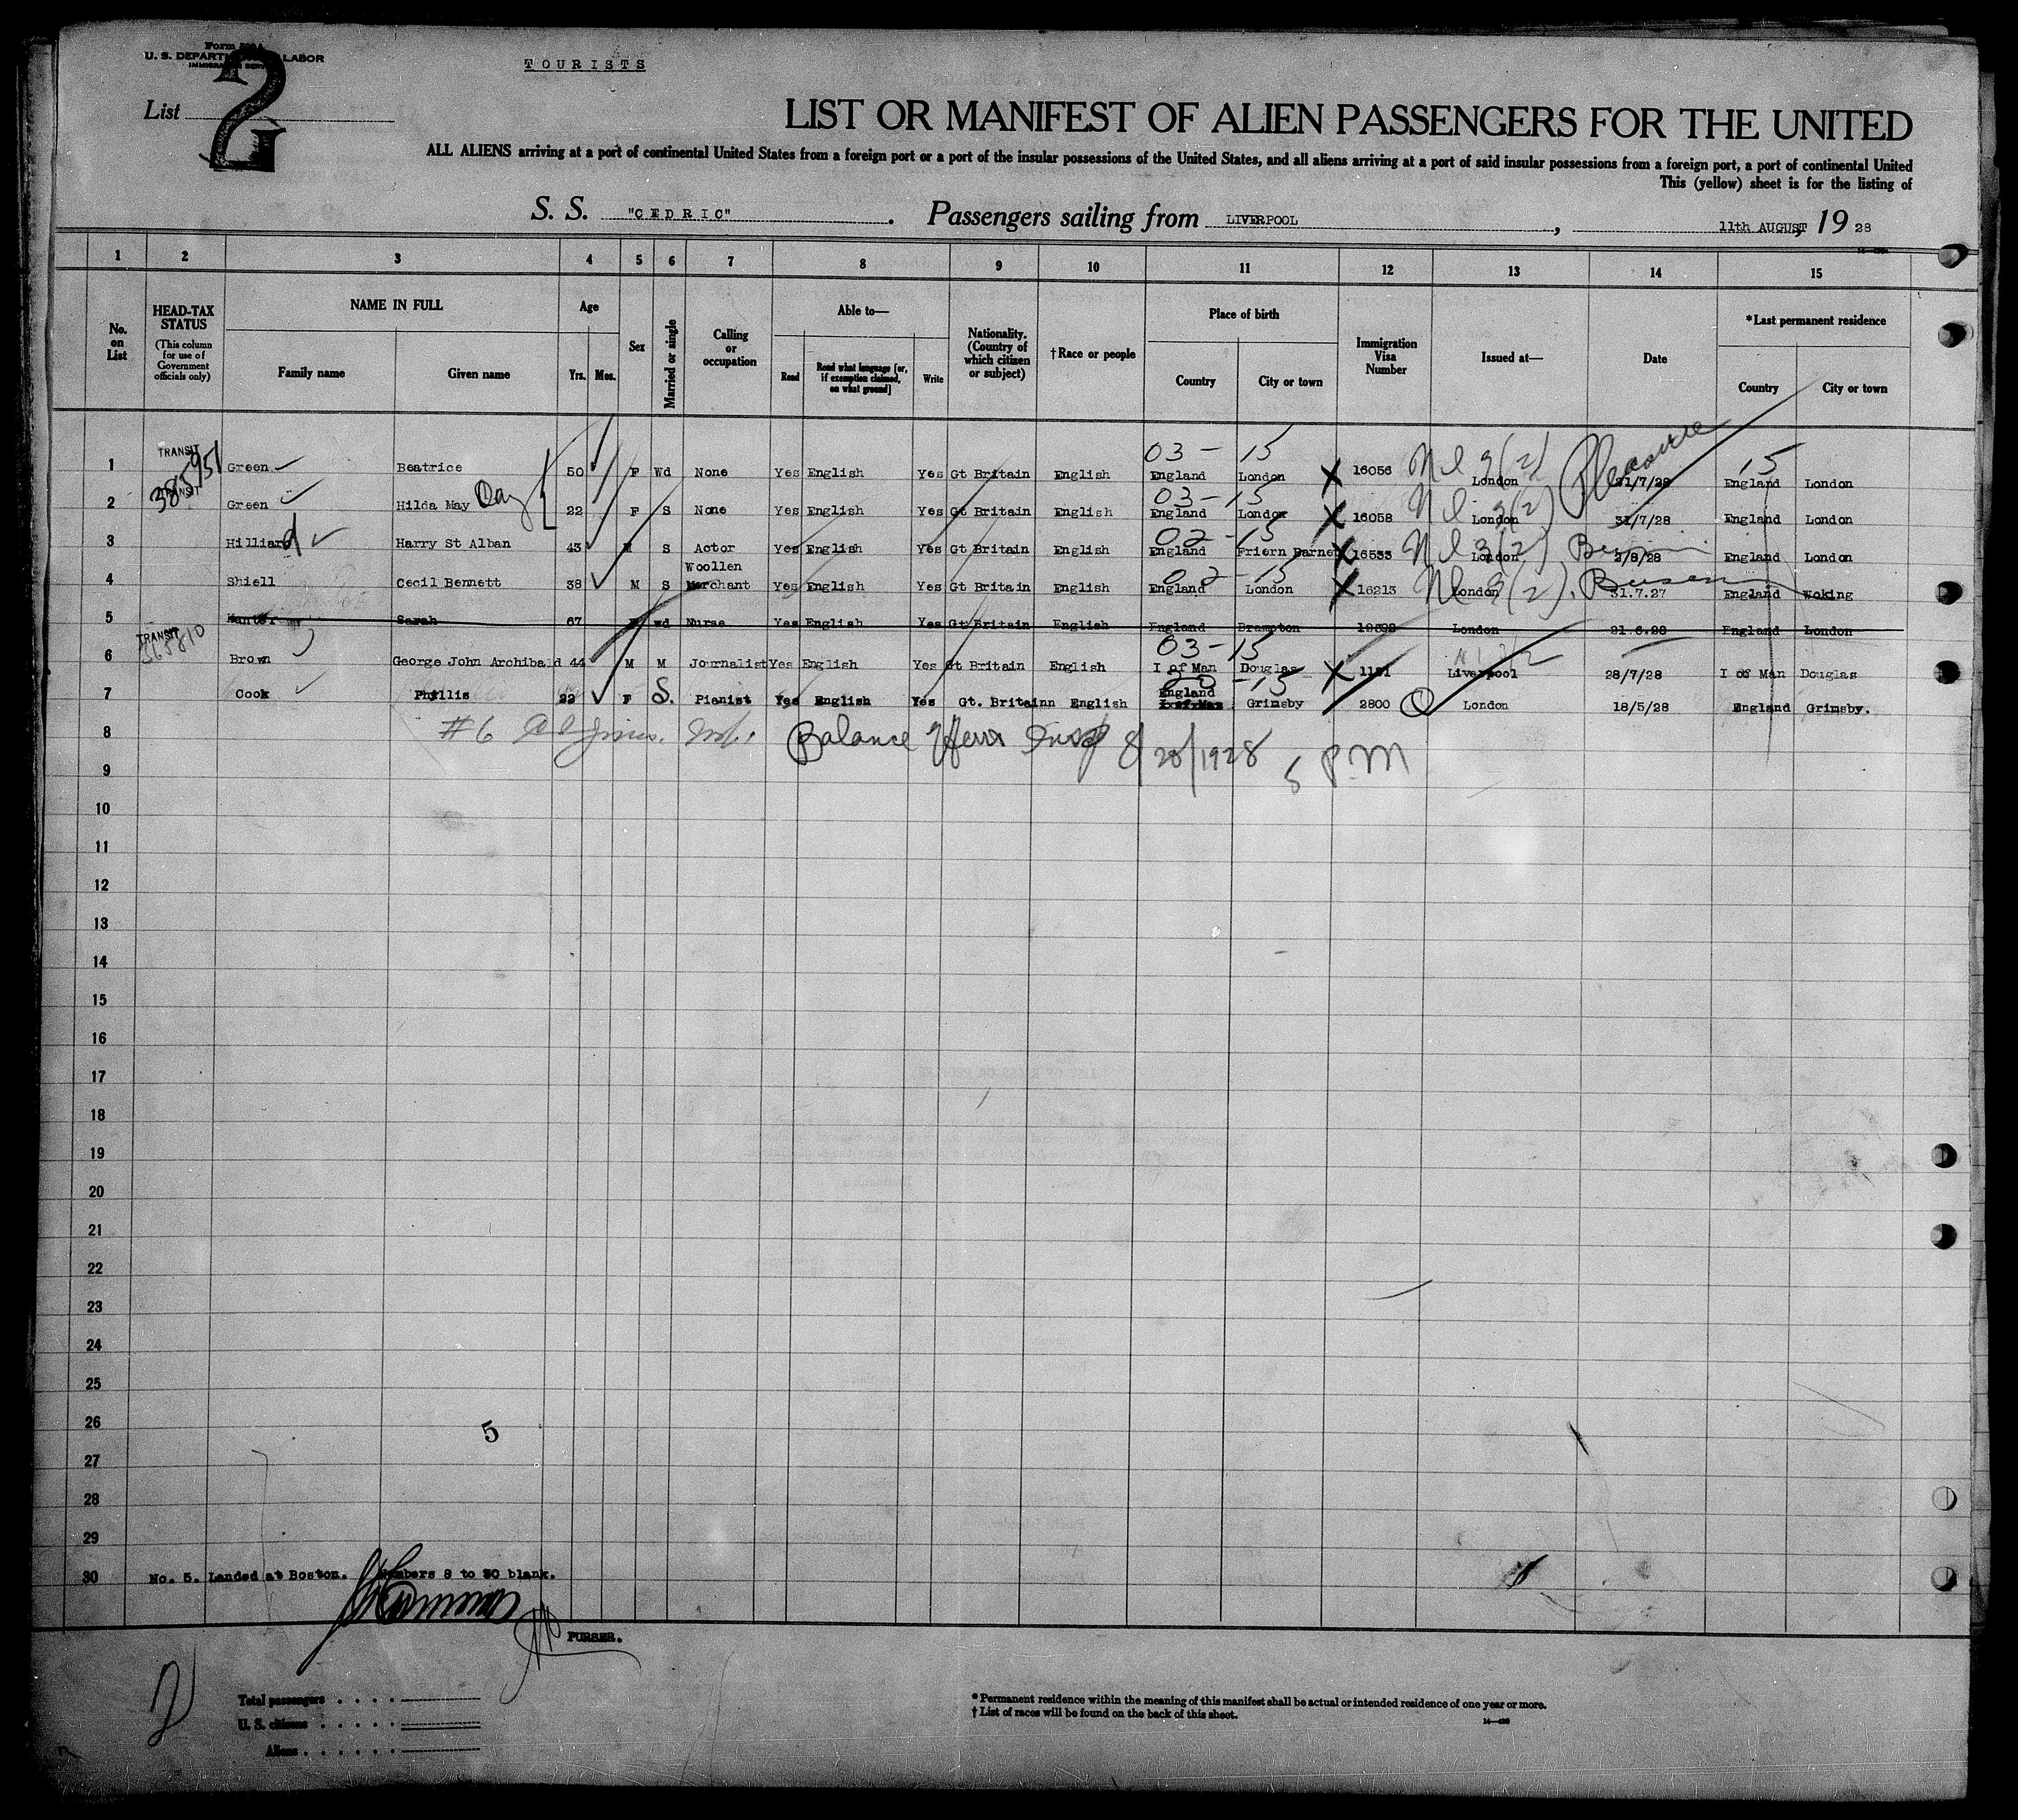 Form 500 A
U. S. DEPARTMENT OF LABOR
IMMIGRATION SERVICE
TOURISTS
List 2
LIST OR MANIFEST OF ALIEN PASSENGERS FOR THE UNITED
ALL ALIENS arriving at a port of continental United States from a foreign port or a port of the insular possessions of the United States, and all aliens arriving at a port of said insular possessions from a foreign port, a port of continental United
This (yellow) sheet is for the listing of
S. S. "CEDRIC". Passengers sailing from LIVERPOOL, 11th AUGUST, 19 28
1 2 3 4 5 6 7 8 9 10 11 12 13 14 15
No. on List
HEAD-TAX STATUS (This column for use of Government officials only)
NAME IN FULL
Family name Given name
Age
Yrs. Mos.
Sex
Married or single
Calling or occupation
Able to—
Read Read what language [or, if exemption claimed, on what ground] Write
Nationality. (Country of which citizen or subject)
†Race or people
Place of birth
Country City or town
Immigration Visa Number
Issued at—
Date
*Last permanent residence
Country City or town
03 - 15
1 TRANSIT 385951 Green Beatrice 50 F Wd None Yes English Yes Gt Britain English England London X 16056 London 31/7/28 Pleasure 15 England London
03 - 15
2 TRANSIT Green Hilda May Day 22 F S None Yes English Yes Gt Britain English England London X 16058 3(2) London 31/7/28 England London
02 - 15
3 Hilliard Harry St Alban 43 M S Actor Yes English Yes Gt Britain English England Friern Barnet X 16533 3(2) London 2/8/28 England London
02 - 15
4 Shiell Cecil Bennett 38 M S Woollen Merchant Yes English Yes Gt Britain English England London X 16213 3(2). London 31.7.27 England Woking
5 Sarah 67 Wd Nurse Yes English Yes Gt Britain English England Brampton London 21.6.28 England London
03 - 15
6 TRANSIT Brown George John Archibald 44 M M Journalist Yes English Yes Gt Britain English I of Man Douglas X 1181 Liverpool 28/7/28 I of Man Douglas
7 Cook Phyllis 22 F S. Pianist Yes English Yes Gt. Britainn English England Grimsby 2800 Q London 18/5/28 England Grimsby.
8 #6 Balance Insp 8/28/1928 5 PM
9
10
11
12
13
14
15
16
17
18
19
20
21
22
23
24
25
26 5
27
28
29
30 No. 5. Landed at Boston. Numbers 8 to 30 blank.
PURSER.
2
Total passengers
U. S. citizens
Aliens
* Permanent residence within the meaning of this manifest shall be actual or intended residence of one year or more.
† List of races will be found on the back of this sheet.